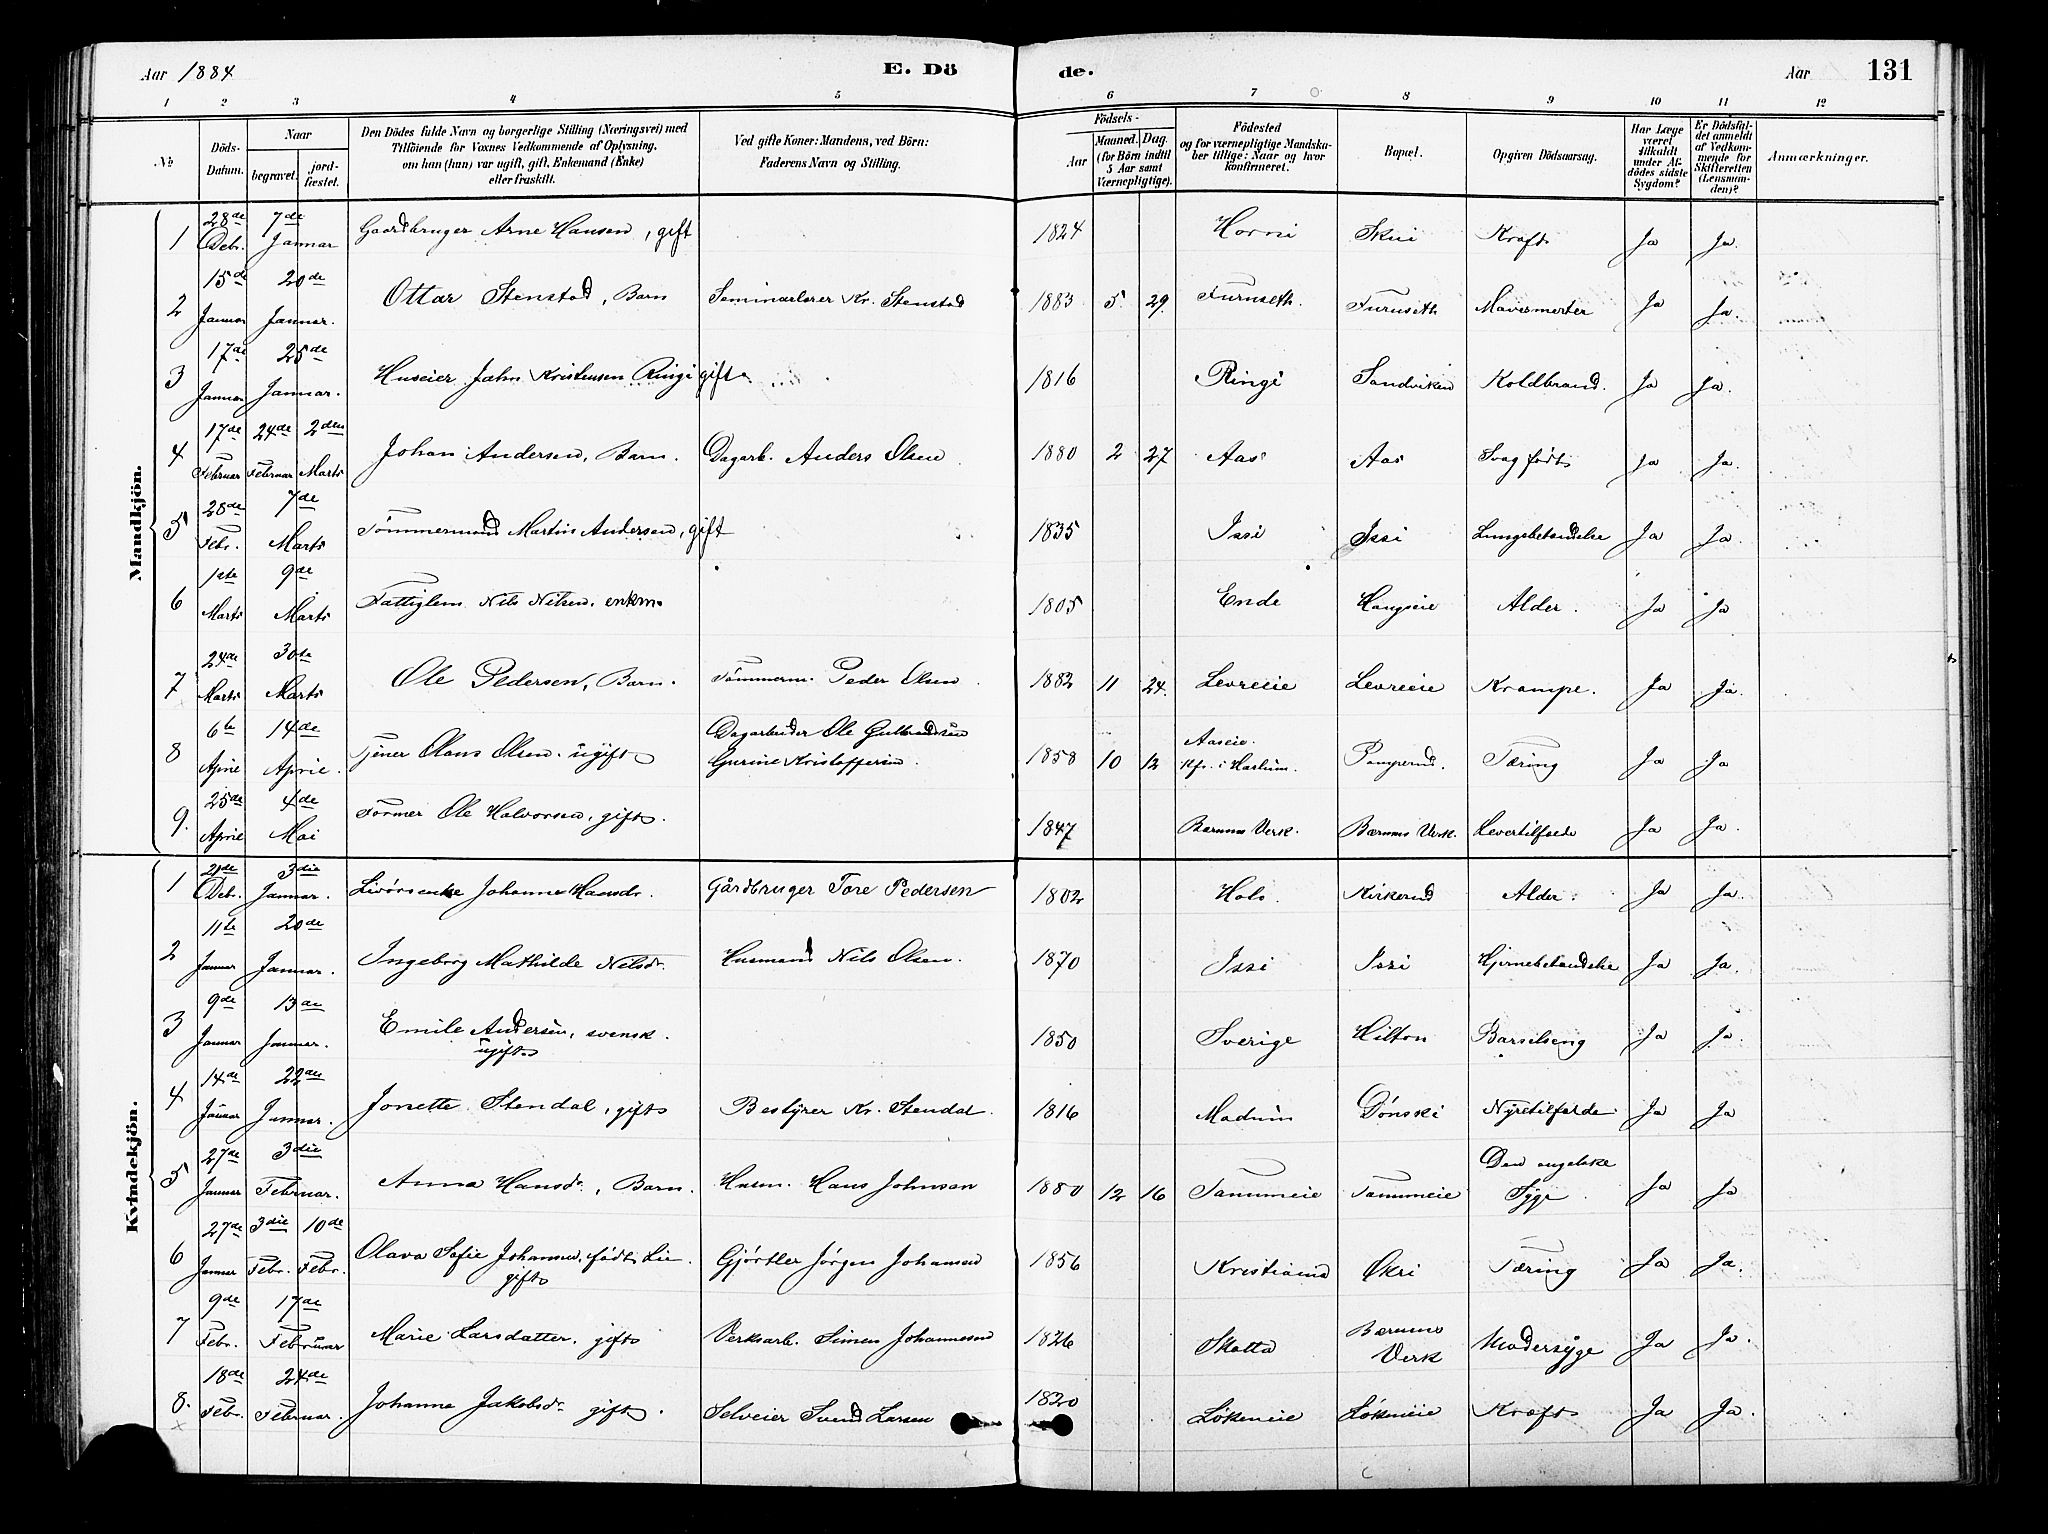 Aar 1884 E. Dö de. Aar 131
1 2 3 4 5 6 7 8 9 10 11 12
No. Döds-Datum. Naar begravet. jordfæstet. Den Dödes fulde Navn og borgerlige Stilling (Næringsvei) med Tilföiende for Voxnes Vedkommende af Oplysning, om han (hun) var ugift, gift, Enkemand (Enke) eller fraskilt. Ved gifte Koner: Mandens, ved Börn: Faderens Navn og Stilling. Födsels- Aar Maaned. Dag. (for Börn indtil 5 Aar samt Værnepligtige). Födested og for værnepligtige Mandskaber tillige: Naar og hvor konfirmeret. Bopæl. Opgiven Dödsaarsag. Har Læge været tilkaldt under Afdödes sidste Sygdom? Er Dödsfaldet anmeldt af Vedkommende for Skifteretten (Lensmanden)? Anmærkninger.
Mandkjön.
1 28de Debr. 7de Januar Gaardbruger Arne Hansen, gift 1824 Horni Skui Kræft Ja Ja.
2 15de Januar 20de Januar. Ottar Stenstad, Barn Seminarlærer Kr. Stenstad 1883 5 29. Furuseth. Furuseth Mavesmerter Ja Ja.
3 17de Januar 25de Januar. Huseier Jahn Kristensen Ringi gift 1816 Ringi Sandviken Koldbrand. Ja Ja.
4 17de Februar 24de Februar 2den Marts Johan Andersen, Barn. Dagarb. Anders Olsen 1880 2 27 Aas Aas Svag født Ja Ja.
5 28de Febr. 7de Marts Tømmermand Martin Andersen, gift 1835 Issi Issi Lungebetændelse Ja Ja.
6 1ste Marts 9de Marts Fattiglem Nils Nilsen, enkm. 1805 Ende Haugseie Alder. Ja Ja
7 24de Marts 30te Marts Ole Pedersen, Barn. Tømmerm. Peder Olsen 1882 11 24. Levreeie Levreeie Krampe. Ja Ja.
8 6te April 14de April. Tjener Olaus Olsen. ugift Dagarbeider Ole Gulbrandsen Gurine Kristoffersen. 1858 10 12 Aaseie. Kfr. i Haslum. Pamperud. Tæring Ja Ja
9. 25de April 4de Mai Former Ole Halvorsen, gift. 1847 Bærums Verk. Bærums Verk. Levertilfælde Ja Ja.
Kvindekjön.
1 21de Debr. 3die Januar. Johanne Hansdr. Gårdbruger Tore Pedersen 1802 Hols Kirkerud Alder. Ja Ja.
2 11te Januar 20de Januar. Ingeborg Mathilde Nilsdr. Husmand Nils Olsen. 1870 Issi Issi Hjernebetændelse Ja Ja.
3 9de Januar 13de Januar. Emile Andersen, svensk. ugift 1850 Sverige Hilton Barselseng Ja Ja.
4 14de Januar 22den Januar. Jonette Stendal, gift Bestyrer Kr. Stendal. 1816 Modum Dønski Nyretilfælde Ja Ja
5 27de Januar 3die Februar. Anna Hansdr., Barn. Husm. Hans Johnsen 1880 12 16 Tanumeie Tanumeie Den engelske Syge Ja Ja
6 27de Januar 3die Febr. 10de Febr. Olava Sofie Johansen, født Lie gift Gjørtler Jørgen Johansen 1856 Kristiania Økri Tæring Ja Ja.
7 9de Febr. 17de Februar Marie Larsdatter. gift Verksarb. Simen Johannesen 1826 Skotta Bærums Verk Modersyge Ja Ja.
8. 18de Febr. 24de Februar. Johanne Jakobsdr. gift. Selveier Svend Larsen 1820 Løkeneie Løkeneie Kræft Ja Ja.